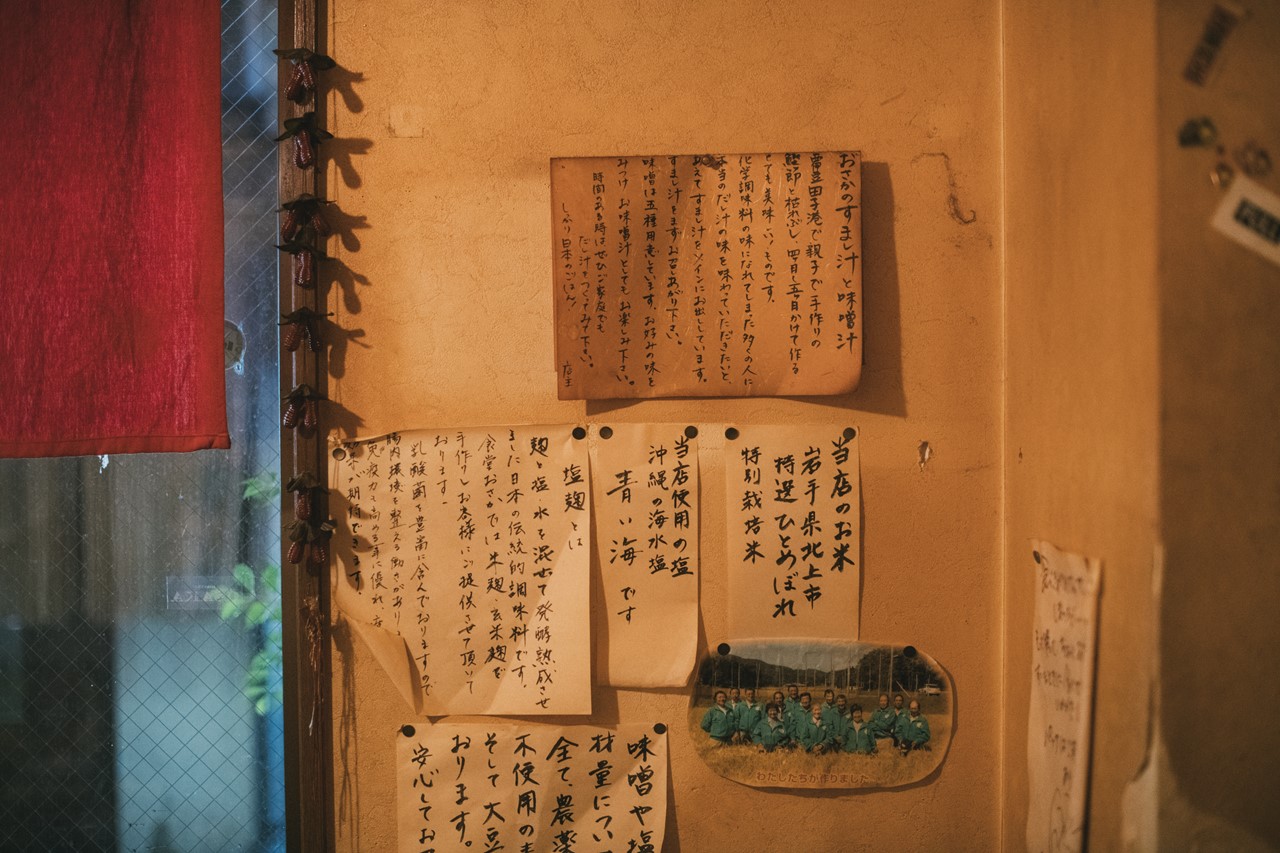 おさかのすまし汁と味噌汁
常豊田子港で親子で手作りの
鰹節と枯れぶし、四月し五月かけて作る
とても美味しいものです。
化学調味料の味になれてしまった多くの人に
本当のだし汁の味を味わっていただきたいと、
あえてすまし汁をメインにお出ししています。
すまし汁をまずお召しあがり下さい。
味噌は五種用意しています。お好みの味を
みつけ お味噌汁としてもお楽しみ下さい。
時間のある時はぜひご家庭でも
だし汁をつくってみて下さい。
しっかり日本のごはん!
店主
当店のお米
岩手県北上市
特選 ひとめぼれ
特別栽培米
当店使用の塩
沖縄の海水塩
青い海 です
塩麹 とは
麹と塩・水を混ぜて発酵熟成させ
ました日本の伝統的調味料です。
食堂おさかでは 米麹・玄米麹を
手作りしお客様にご提供させて頂いて
おります。
乳酸菌を豊富に含んでおりますので
腸内環境を整える働きがあり
免疫力を高める事に優れ、
が期待できます。
わたしたちが作りました
味噌や塩
材量につい
全て、農薬
不使用の
そして大豆
おります。
安心してお